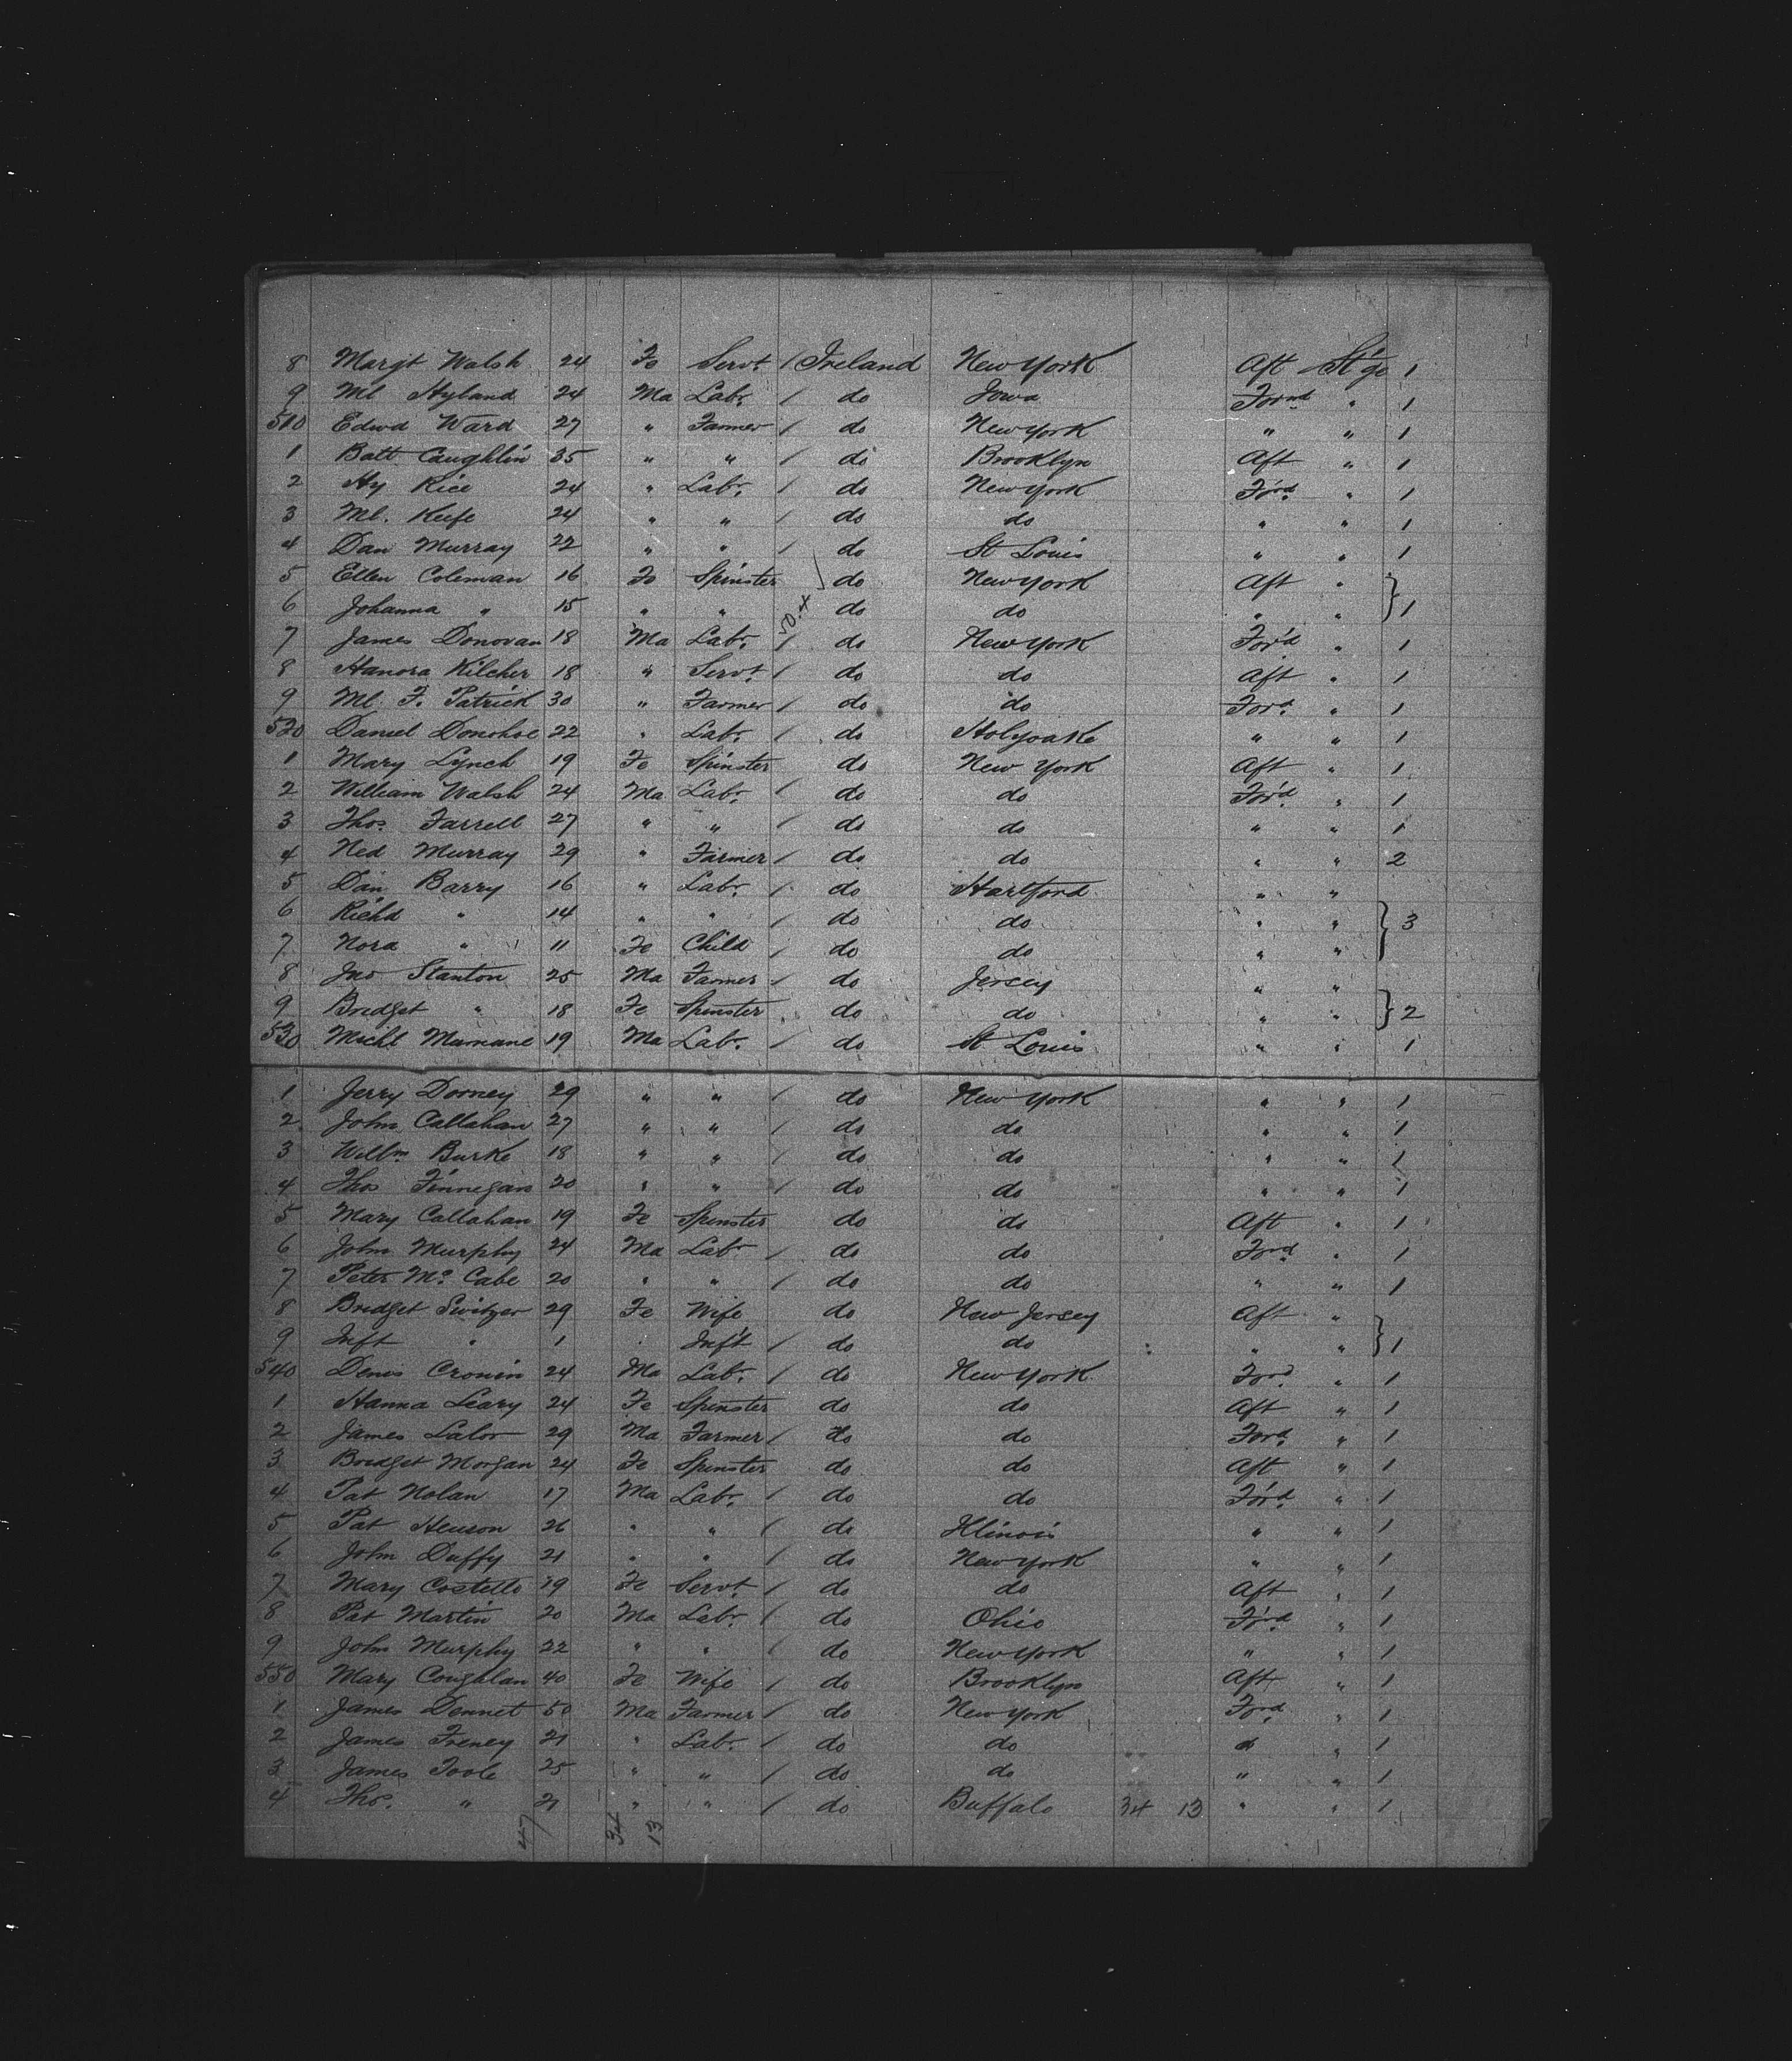 8 Margt Walsh 24 Fe Servt / Ireland New York Aft St'ge 1
9 Ml Hyland 24 Ma Labr. / do Iowa Forwd " 1
510 Edwd Ward 27 " Farmer / do New York " " 1
1 Batt Caughlin 35 " " / do Brooklyn Aft " 1
2 Hy Rice 24 " Labr. / do New York For'd " 1
3 Ml. Keefe 24 " " / do do " " 1
4 Dan Murray 22 " " / do St Louis " " 1
5 Ellen Coleman 16 Fe Spinster do New York Aft "
6 Johanna " 15 " " do do " " } 1
7 James Donovan 18 Ma Labr. / do New York For'd " 1
8 Hanora Kilcher 18 " Servt / do do Aft " 1
9 Ml F. Patrick 30 " Farmer / do do Ford. " 1
520 Daniel Donohoe 22 " Labr. / do Holyoake " " 1
1 Mary Lynch 19 Fe Spinster do New York Aft " 1
2 William Walsh 24 Ma Labr. / do do For'd. " 1
3 Thos. Farrell 27 " " / do do " " 1
4 Ned Murray 29 " Farmer / do do " " 2
5 Dan Barry 16 " Labr. / do Hartford " "
6 Richd " 14 " " / do do " " } 3
7 Nora " 11 Fe Child / do do " "
8 Jno Stanton 25 Ma Farmer / do Jersey " "
9 Bridget " 18 Fe Spinster do do " " } 2
530 Michl 19 Ma Labr. / do St Louis " " 1
1 Jerry Dorney 29 " " / do New York " " 1
2 John Callahan 27 " " / do do " " 1
3 Willm Burke 18 " " / do do " " 1
4 Thos Finnegan 20 " " / do do " " 1
5 Mary Callahan 19 Fe Spinster do do Aft " 1
6 John Murphy 24 Ma Labr / do do Ford. " 1
7 Peter Mc Cabe 20 " " / do do " " 1
8 Bridget Switzer 29 Fe Wife do New Jersey Aft "
9 Inft " 1 Inf't / do do " " } 1
540 Denis Cronin 24 Ma Labr. / do New York Ford. " 1
1 Hanna Leary 24 Fe Spinster do do Aft " 1
2 James Lalor 29 Ma Farmer / do do Ford. " 1
3 Bridget Morgan 24 Fe Spinster do do Aft " 1
4 Pat Nolan 17 Ma Labr. / do do For'd. " 1
5 Pat Heuson 26 " " / do Illinois " " 1
6 John Duffy 21 " " / do New York " " 1
7 Mary Costello 19 Fe Servt. / do do Aft " 1
8 Pat Martin 20 Ma Labr. / do Ohio For'd " 1
9 John Murphy 22 " " / do New York " " 1
550 Mary Coughlan 40 Fe Wife / do Brooklyn Aft " 1
1 James Dennet 50 Ma Farmer / do New York Ford. " 1
2 James Freney 21 " Labr. / do do " 1
3 James Toole 25 " " / do do " " 1
4 Thos. " 21 " " / do Buffalo 34 13 " " 1
47 34 13